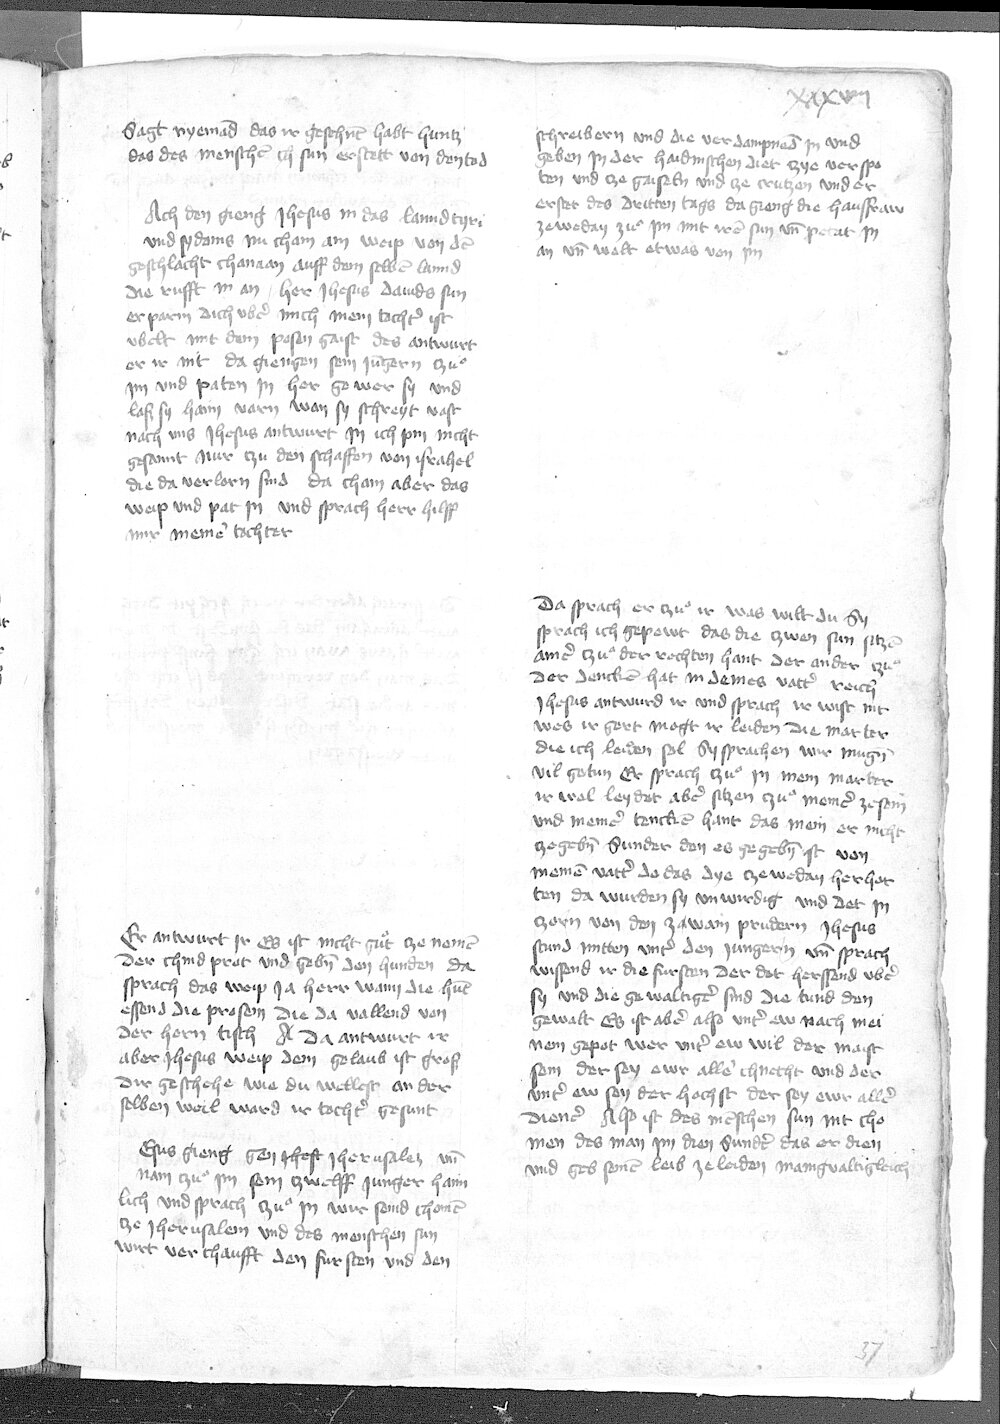 xxxvij
Sagt nyemãd das ir gesehñt habt huntz
das des menschẽ ch sun erstett von den tod
Ach den gieng Jhesus in das lannd tyri
und sydonis nu cham ain weip von dẽ
geschlächt chanaan auff dem selbẽ lannd
die rufft in an her Jhesus dauids sun
erparm dich vbẽr mich mein tochtẽr ist
vbelt mit dem posen gaist des antwurt
er ir nit da giengen sein Jũgern czuͦ
im und paten in her gewer sy und
laß sy haim varn wan sy schreyt vast
nach uns Jhesus antwurt in ich pin nicht
gesannt nur czu den schaffen von israhel
die da verlorn sind da cham aber das
weip und pat in und sprach herr hilff
mir meinẽr tochter
Er antwurt Ir Es ist nicht gůt cze nemẽ
der chind prot und gebñ den hunden da
sprach das weip Ja herr wann die hũt
essend die prosem die da vallend von
der hern tisch A Da antwurt ir
aber Jhesus weip dein gelaub ist gros
dir geschehe wie du wellest an der
selben weil ward ir tochtẽr gesunt
Esus gieng gen Jhest Jherusalez uñ
nam czuͦ im sein czwelff Junger haim
lich und sprach czuͦ in wir seind chomẽ
cze Jherusalem und des menschen sun
wirt verchaufft den fursten und den
schreibern und die verdampnẽd in und
geben in der haidnischen diet czye verspo
ten und cze gaiseln und cze crutzen und er
erstet des dritten tags da gieng die hausfraw
zewedãy zuͦ im mit irẽ sun uñ petat in
an uñ wolt etwas von im
Da sprach er czuͦ ir was wilt du Sy
sprach ich gepewt das die czwen sun sitzẽ
ainẽr czuͦ der rechten hant der ander czuͦ
der dencken hat in deines vattẽr reich
Jhesus antwurd ir und sprach ir wist nit
wes ir gert mogt ir leiden die marter
die ich leiden sol Sy sprachen wir mugñ
vil getun Er sprach czuͦ in mein marter
ir wol leydet abẽr sitzen czuͦ meinẽr zesem
und meinẽr tencken hant das mein er nicht
czegebñ Sunder den es gegebñ ist von
meinẽ vattẽr do das dye czewedãy herhor
ten da wurden sy unwirdig und det in
czorn von den zwain prudern Jhesus
stund mitten untẽr den Jungern uñ sprach
wissend ir die fursten der det herssend vbẽr
sy und die gewaltigẽr sind die tund den
gewalt Es ist abẽr also untẽr ew nach mei
nem gepot wer untẽr ew wil der maist
sein der sey ewr allẽr chnecht und der
untẽr ew sey der hochst der sey ewr allẽr
dienẽr Also ist des mẽschen sun nit cho
men des man im dien Sundẽr das er dien
und geb seinẽ leib ze leiden mainguoltigleich
37